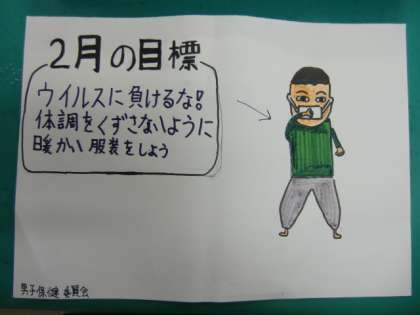 2月の目標
ウイルスに負けるな!
体調をくずさないように
暖かい服装をしよう
男子保健委員会